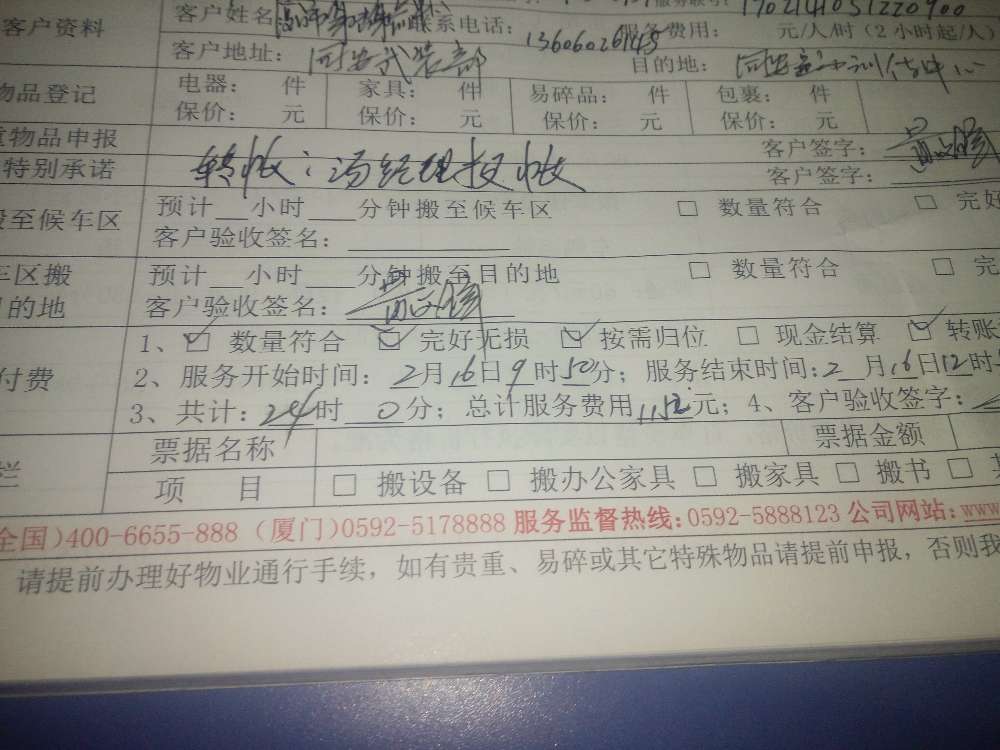 客户资料 客户姓名 联系电话：13606026143 服务费用： 元/人/时（2小时起/人）
客户地址：同安武装部 目的地：
物品登记 电器： 件 家具： 件 易碎品： 件 包裹： 件
保价： 元 保价： 元 保价： 元 保价： 元
物品申报 客户签字：
特别承诺 转帐：汤经理报帐 客户签字：
至候车区 预计__小时___分钟搬至候车区 □ 数量符合 □ 完好
客户验收签名：
车区搬 预计__小时___分钟搬至目的地 □ 数量符合 □ 完
目的地 客户验收签名：
1、☑ 数量符合 ☑ 完好无损 ☑ 按需归位 □ 现金结算 ☑ 转账
付费 2、服务开始时间：2月16日9时50分；服务结束时间：2月16日12时
3、共计：24时0分；总计服务费用元；4、客户验收签字：
栏 票据名称 票据金额
项 目 □ 搬设备 □ 搬办公家具 □ 搬家具 □ 搬书 □
全国）400-6655-888（厦门）0592-5178888 服务监督热线：0592-5888123 公司网站：www
请提前办理好物业通行手续，如有贵重、易碎或其它特殊物品请提前申报，否则我